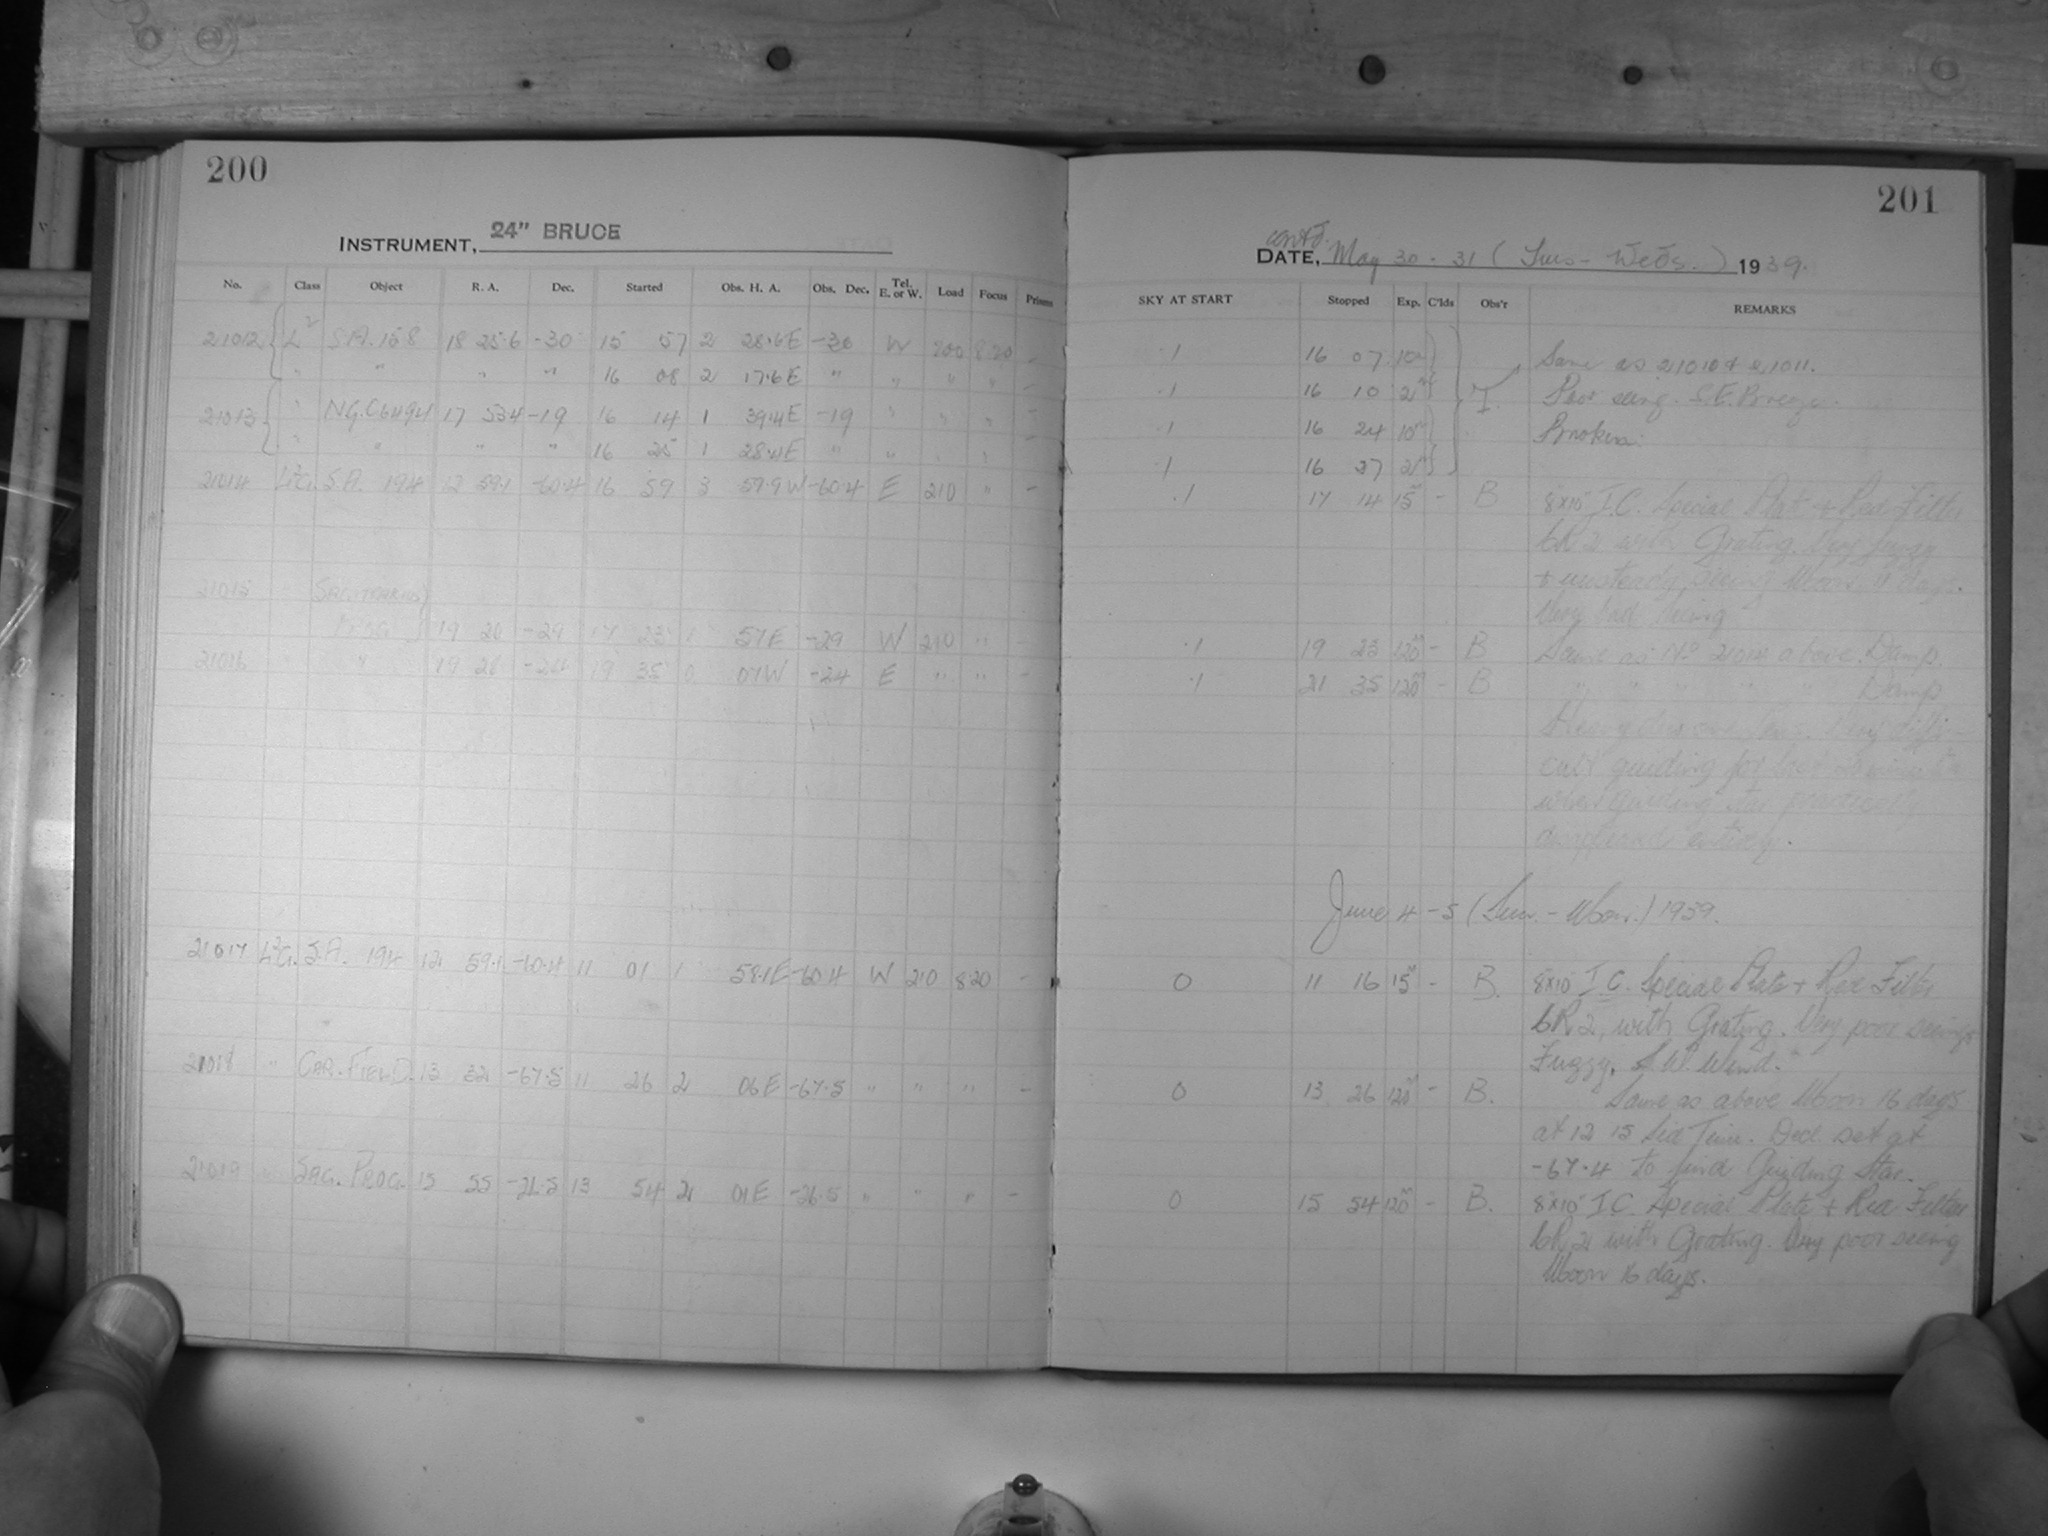 200
INSTRUMENT, 24" BRUCE
No. Class Object R. A. Dec. Started Obs. H. A. Obs. Dec. Tel. E. or W. Load Focus Prisms
21012 L2 S.A. 158 18 25.6 -30 15 57 2 28.6E -30 W 200 8.20 -
" " " " 16 08 2 17.6E " " " " -
21013 " N.G.C 6494 17 53.4 -19 16 14 1 39.4E -19 " " " -
" " " " 16 25 1 28.4E " " " "
21014 L2G. S.A. 194 12 59.1 -60.4 16 59 3 59.9W -60.4 E 210 " -
21015 SAGITTARIUS
19 20 -29 17 23 57E -29 W 210 " -
21016 " " 19 35 0 E " " -
21017 L2G. S.A. 194 12 59.1 -60.4 11 01 1 58.1E -60.4 W 210 8.20 -
21018 " CAR. FIELD. 13 32 -67.5 11 26 2 06E -67.5 " " " -
21019 " SAG. PROG. 15 55 -26.5 13 54 2 01E -26.5 " " " -
201
cont'd.
DATE, May 30 - 31 (Tues - Weds.) 1939.
SKY AT START Stopped Exp. C'lds Obs'r REMARKS
.1 16 07 10m Same as 21010 & 21011.
.1 16 10 2m T. Poor seeing. S.E. Breeze.
.1 16 24 10m Smokes.
.1 16 27 2m
.1 17 14 15m - B 8x10 I.C. Special Plate + Red Filter
6R2 with Grating. Very fuzzy
+ unsteady seeing Moon 11 days.
Very bad seeing
.1 19 23 120m - B Same as No 21014 above. Damp.
.1 21 35 120m - B " " " " " Damp
Very diffi-
cult guiding for last
when guiding star practically
disappeared entirely.
June 4 - 5 (Sun. - Mon.) 1939.
0 11 16 15m - B. 8x10 I.C. Special Plate + Red Filter
6R2, with Grating. Very poor seeing
Fuzzy, S.W. Wind.
0 13 26 120m - B. Same as above Moon 16 days
at 12 15 Sid Time. Decl. set at
-67.4 to find Guiding Star.
0 15 54 120m - B. 8x10 I.C. Special Plate + Red Filter
6R2 with Grating. Very poor seeing
Moon 16 days.